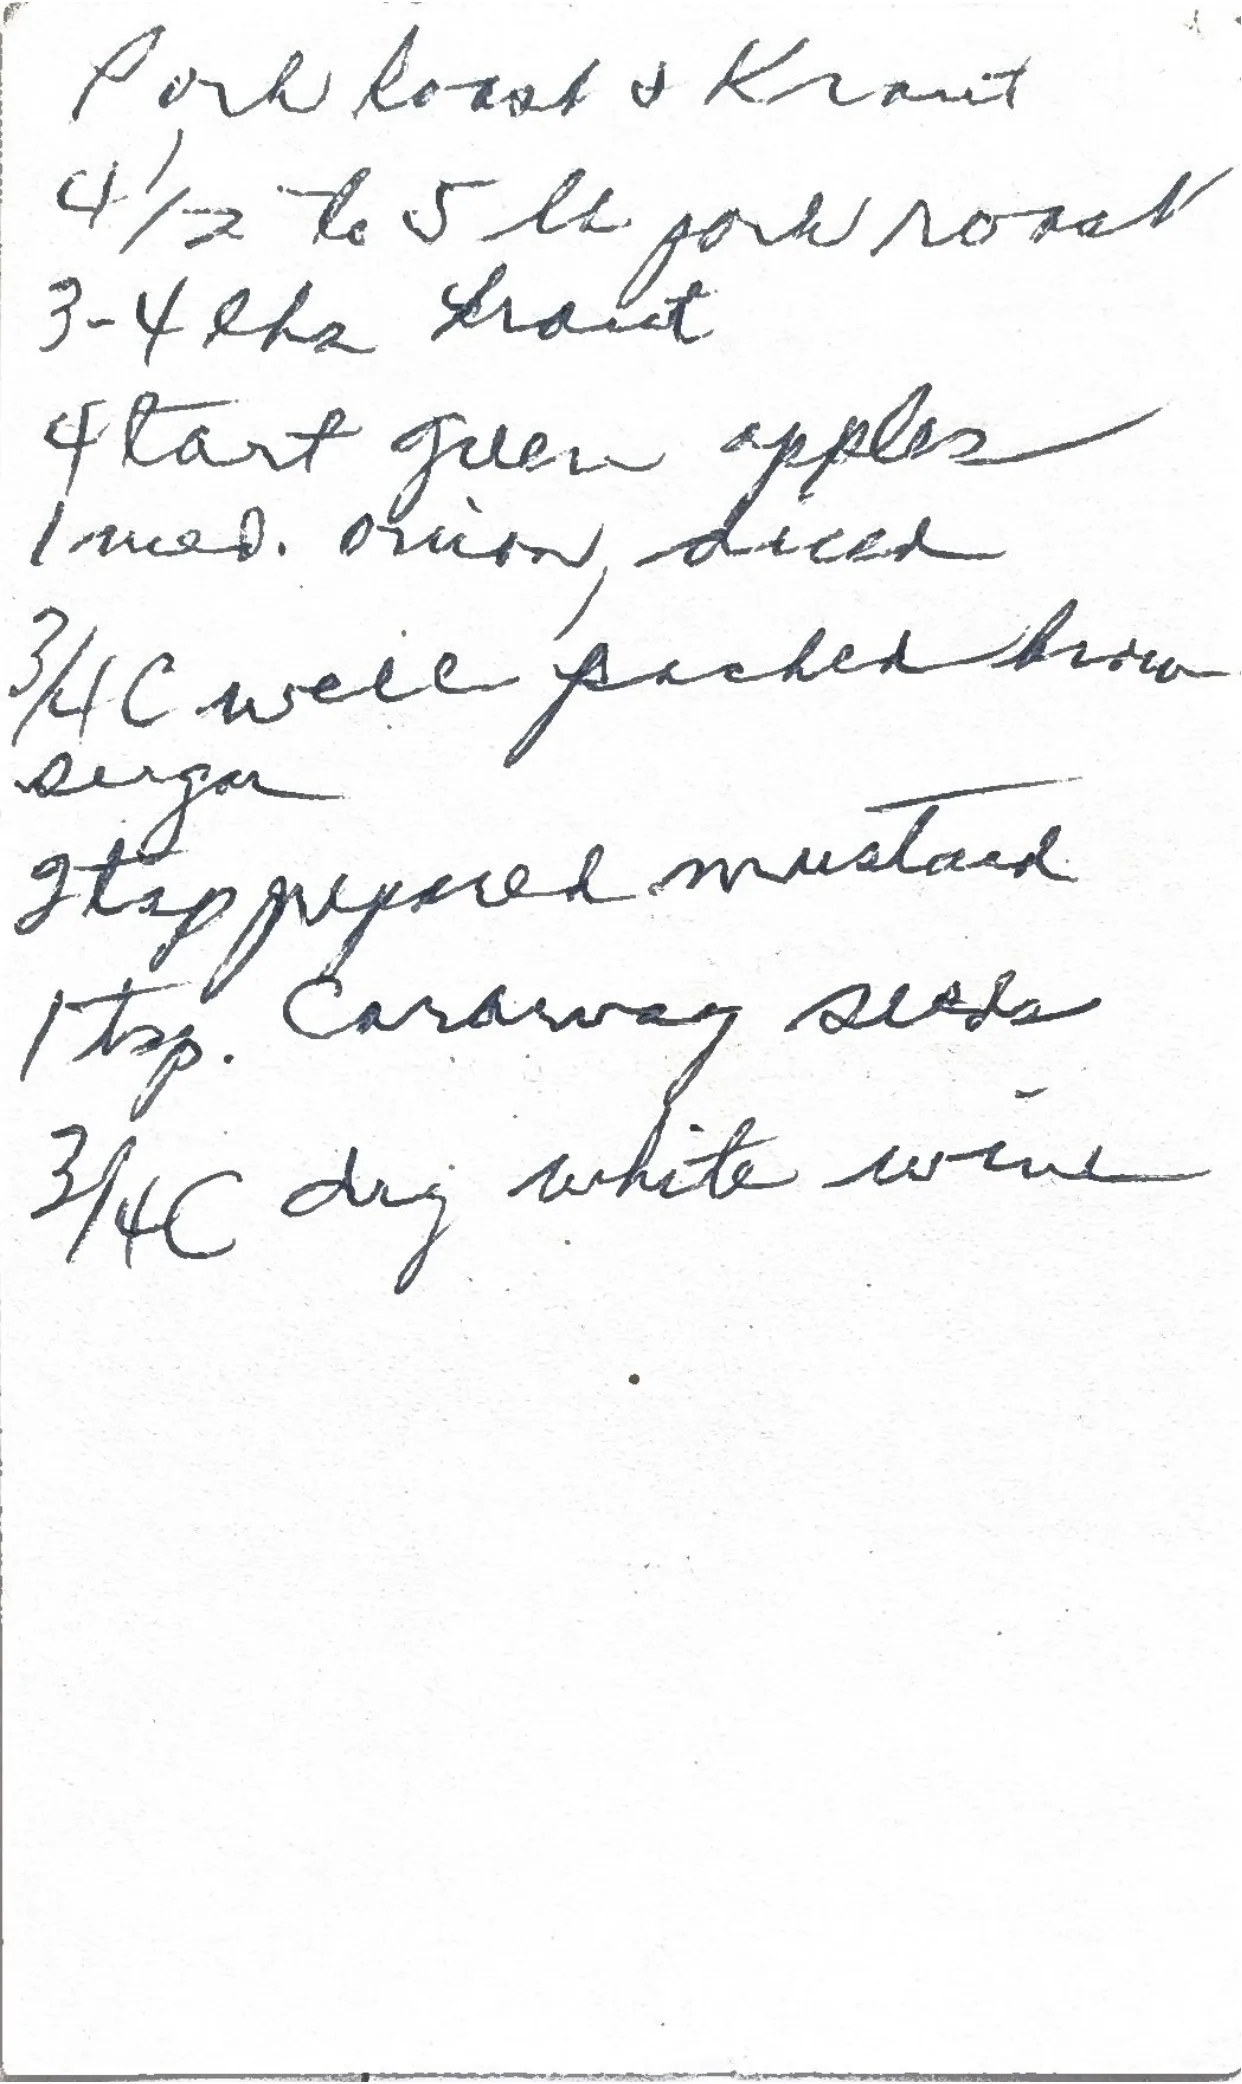 Pork Roast & Kraut
4 1/2 to 5 lb pork roast
3-4 lbs kraut
4 tart green apples
1 med. onion, diced
3/4 C well packed brow
sugar
2 tsp prepared mustard
1 tsp. Caraway seeds
3/4 C dry white wine